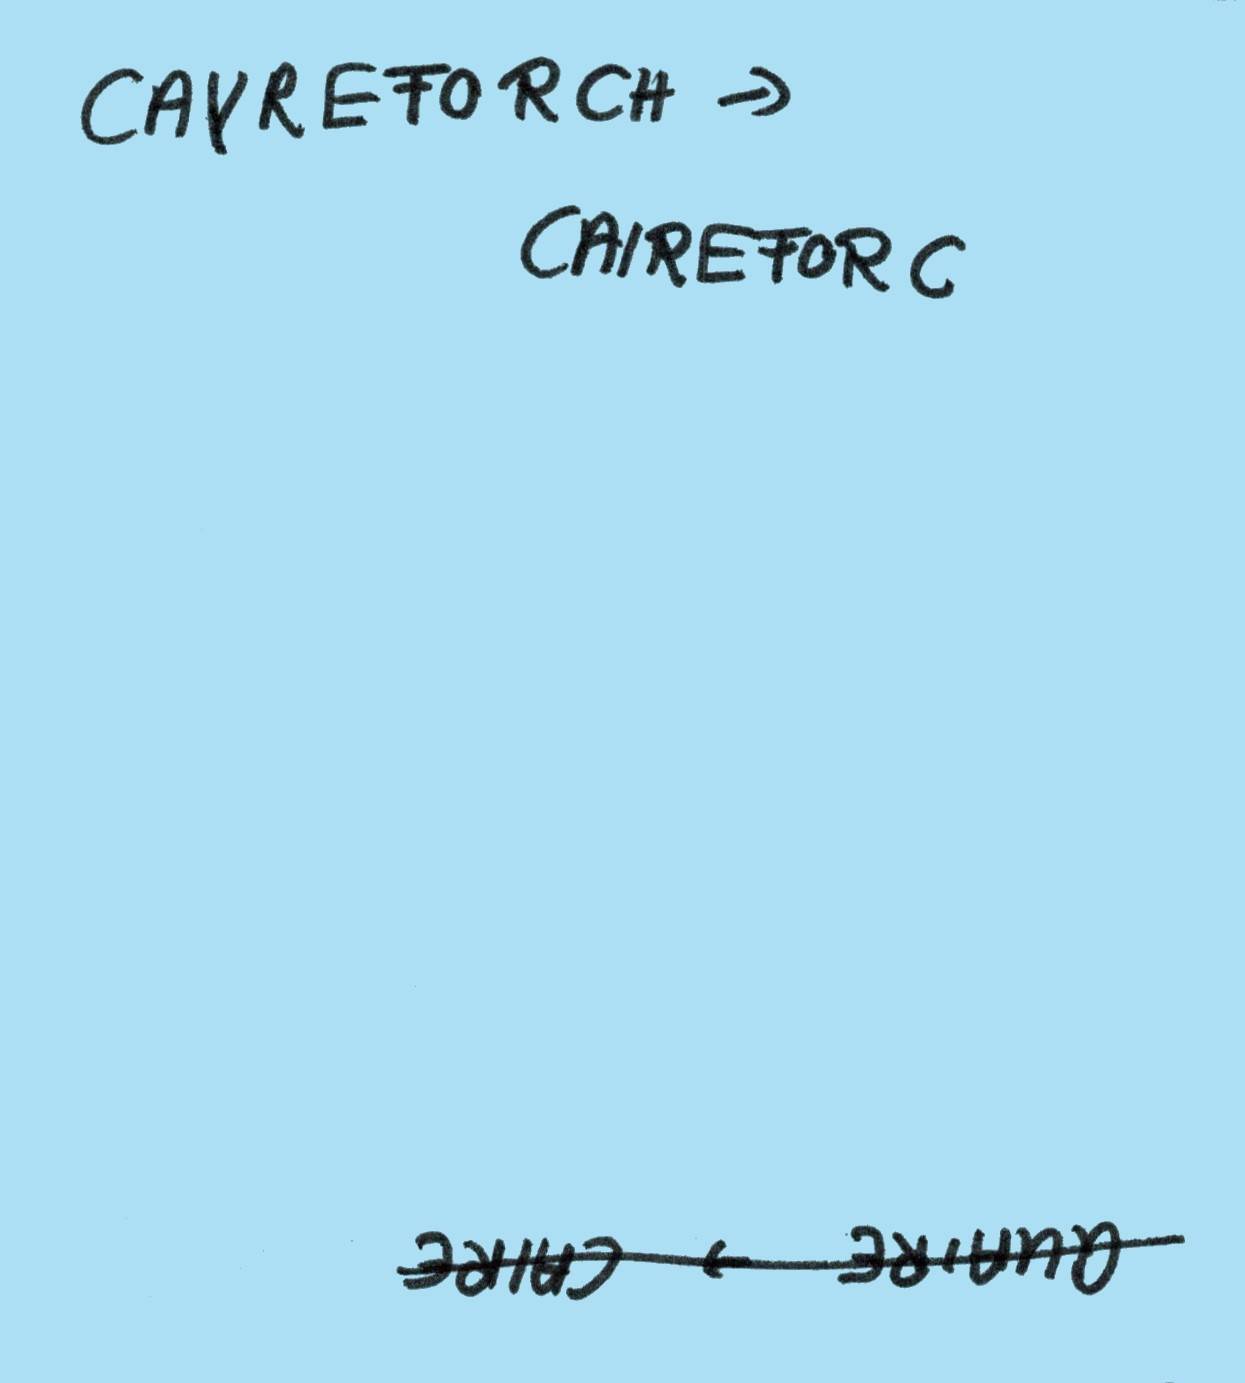 CAYREFORCH →
CAIREFORC
QUAIRE → CAIRE